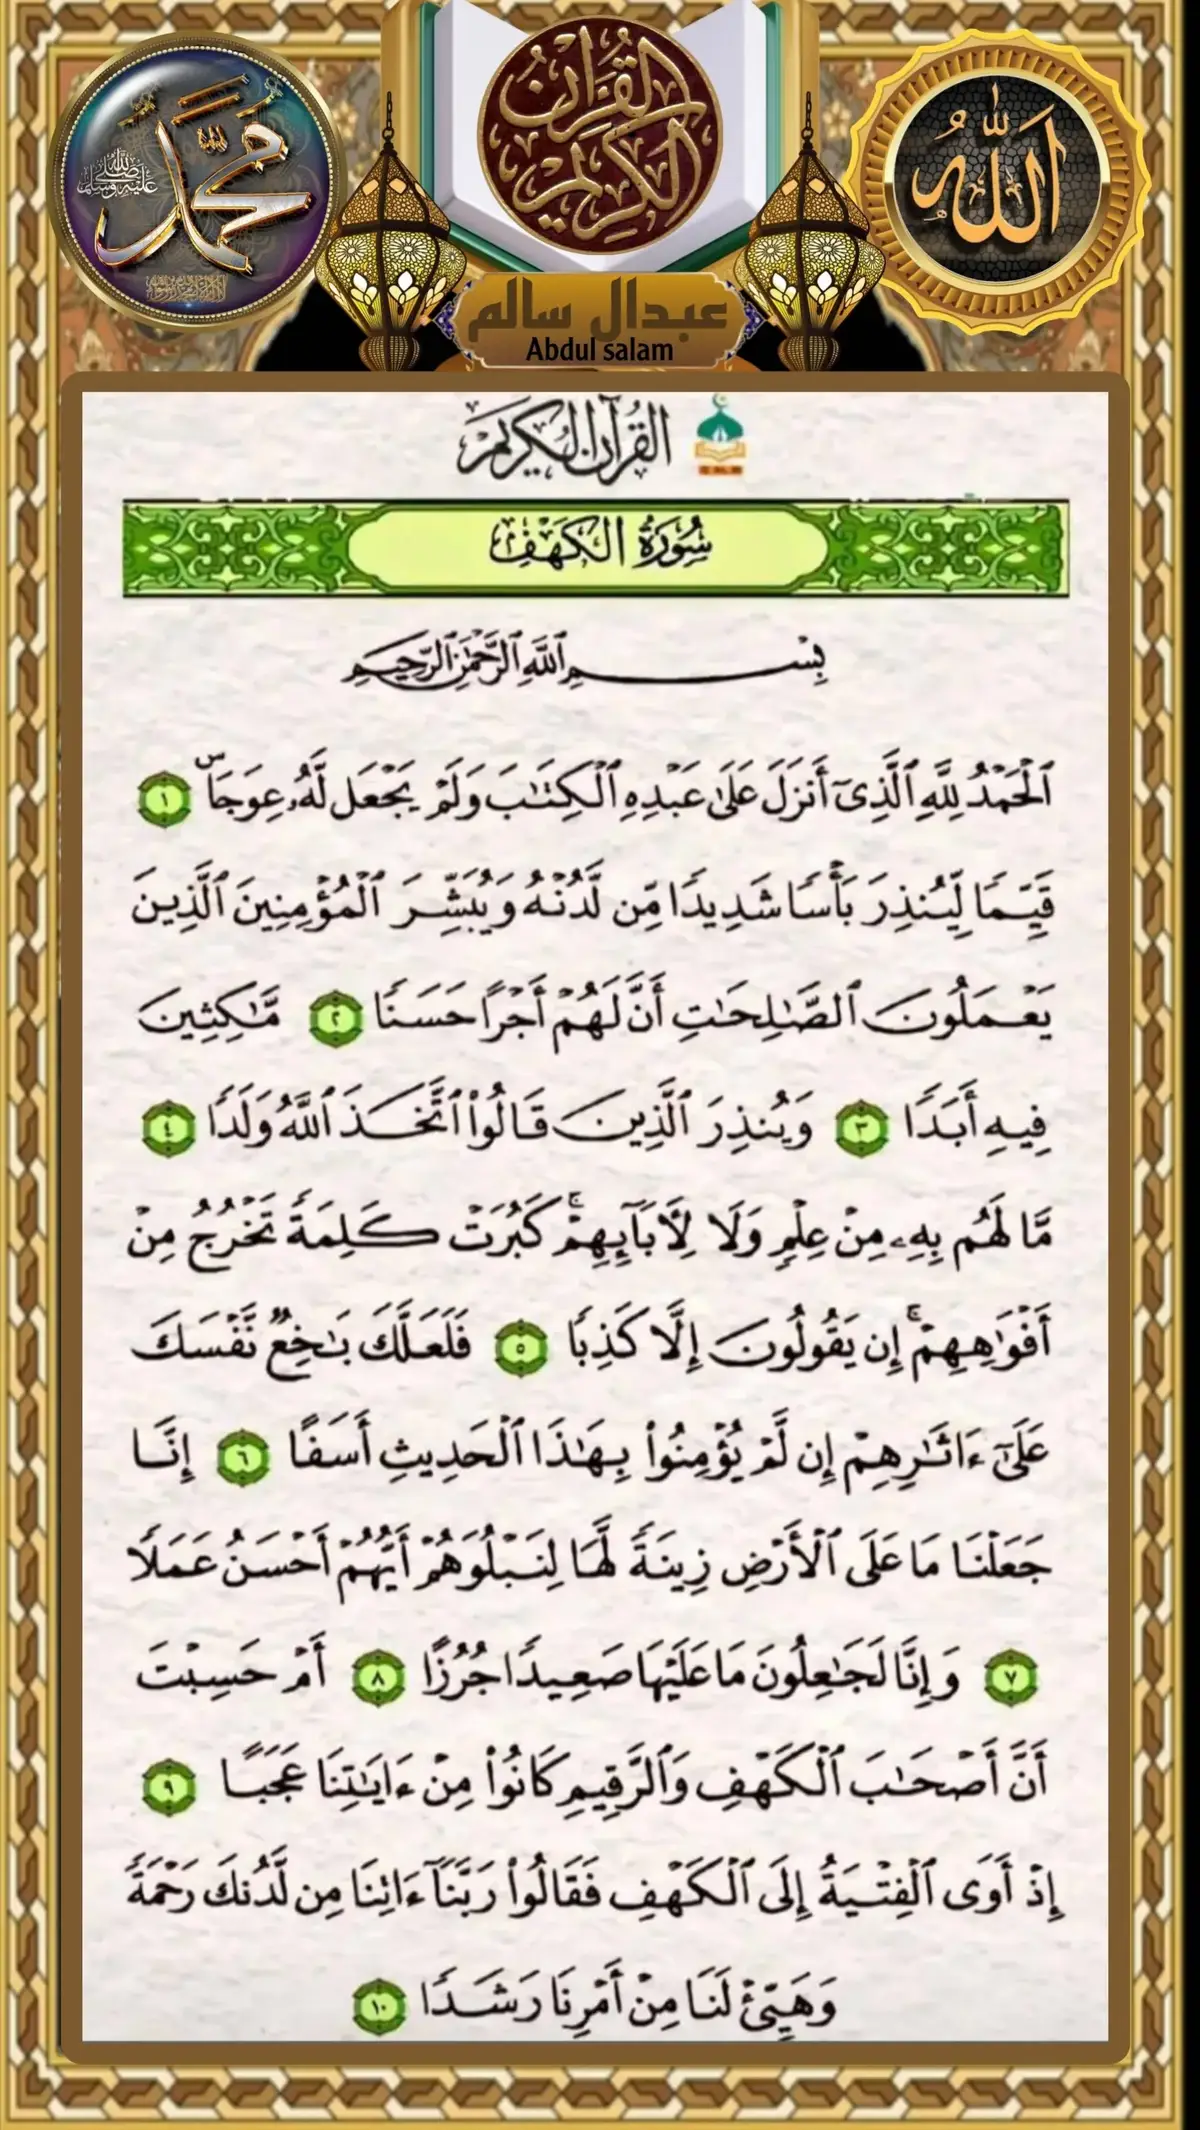 القرآن الكريم
محمد
صلى الله عليه وسلم
الله
عبدال سالم
Abdul salam
القرآن الكريم
سُورَةُ الكَهْفِ
بِسْمِ ٱللَّهِ ٱلرَّحْمَٰنِ ٱلرَّحِيمِ
ٱلْحَمْدُ لِلَّهِ ٱلَّذِىٓ أَنزَلَ عَلَىٰ عَبْدِهِ ٱلْكِتَٰبَ وَلَمْ يَجْعَل لَّهُۥ عِوَجَاۜ ١
قَيِّمًا لِّيُنذِرَ بَأْسًا شَدِيدًا مِّن لَّدُنْهُ وَيُبَشِّرَ ٱلْمُؤْمِنِينَ ٱلَّذِينَ
يَعْمَلُونَ ٱلصَّٰلِحَٰتِ أَنَّ لَهُمْ أَجْرًا حَسَنًا ٢ مَّٰكِثِينَ
فِيهِ أَبَدًا ٣ وَيُنذِرَ ٱلَّذِينَ قَالُوا۟ ٱتَّخَذَ ٱللَّهُ وَلَدًا ٤
مَّا لَهُم بِهِۦ مِنْ عِلْمٍ وَلَا لِأَبَآئِهِمْ ۚ كَبُرَتْ كَلِمَةً تَخْرُجُ مِنْ
أَفْوَٰهِهِمْ ۚ إِن يَقُولُونَ إِلَّا كَذِبًا ٥ فَلَعَلَّكَ بَٰخِعٌ نَّفْسَكَ
عَلَىٰٓ ءَاثَٰرِهِمْ إِن لَّمْ يُؤْمِنُوا۟ بِهَٰذَا ٱلْحَدِيثِ أَسَفًا ٦ إِنَّا
جَعَلْنَا مَا عَلَى ٱلْأَرْضِ زِينَةً لَّهَا لِنَبْلُوَهُمْ أَيُّهُمْ أَحْسَنُ عَمَلًا
٧ وَإِنَّا لَجَٰعِلُونَ مَا عَلَيْهَا صَعِيدًا جُرُزًا ٨ أَمْ حَسِبْتَ
أَنَّ أَصْحَٰبَ ٱلْكَهْفِ وَٱلرَّقِيمِ كَانُوا۟ مِنْ ءَايَٰتِنَا عَجَبًا ٩
إِذْ أَوَى ٱلْفِتْيَةُ إِلَى ٱلْكَهْفِ فَقَالُوا۟ رَبَّنَآ ءَاتِنَا مِن لَّدُنكَ رَحْمَةً
وَهَيِّئْ لَنَا مِنْ أَمْرِنَا رَشَدًا ١٠